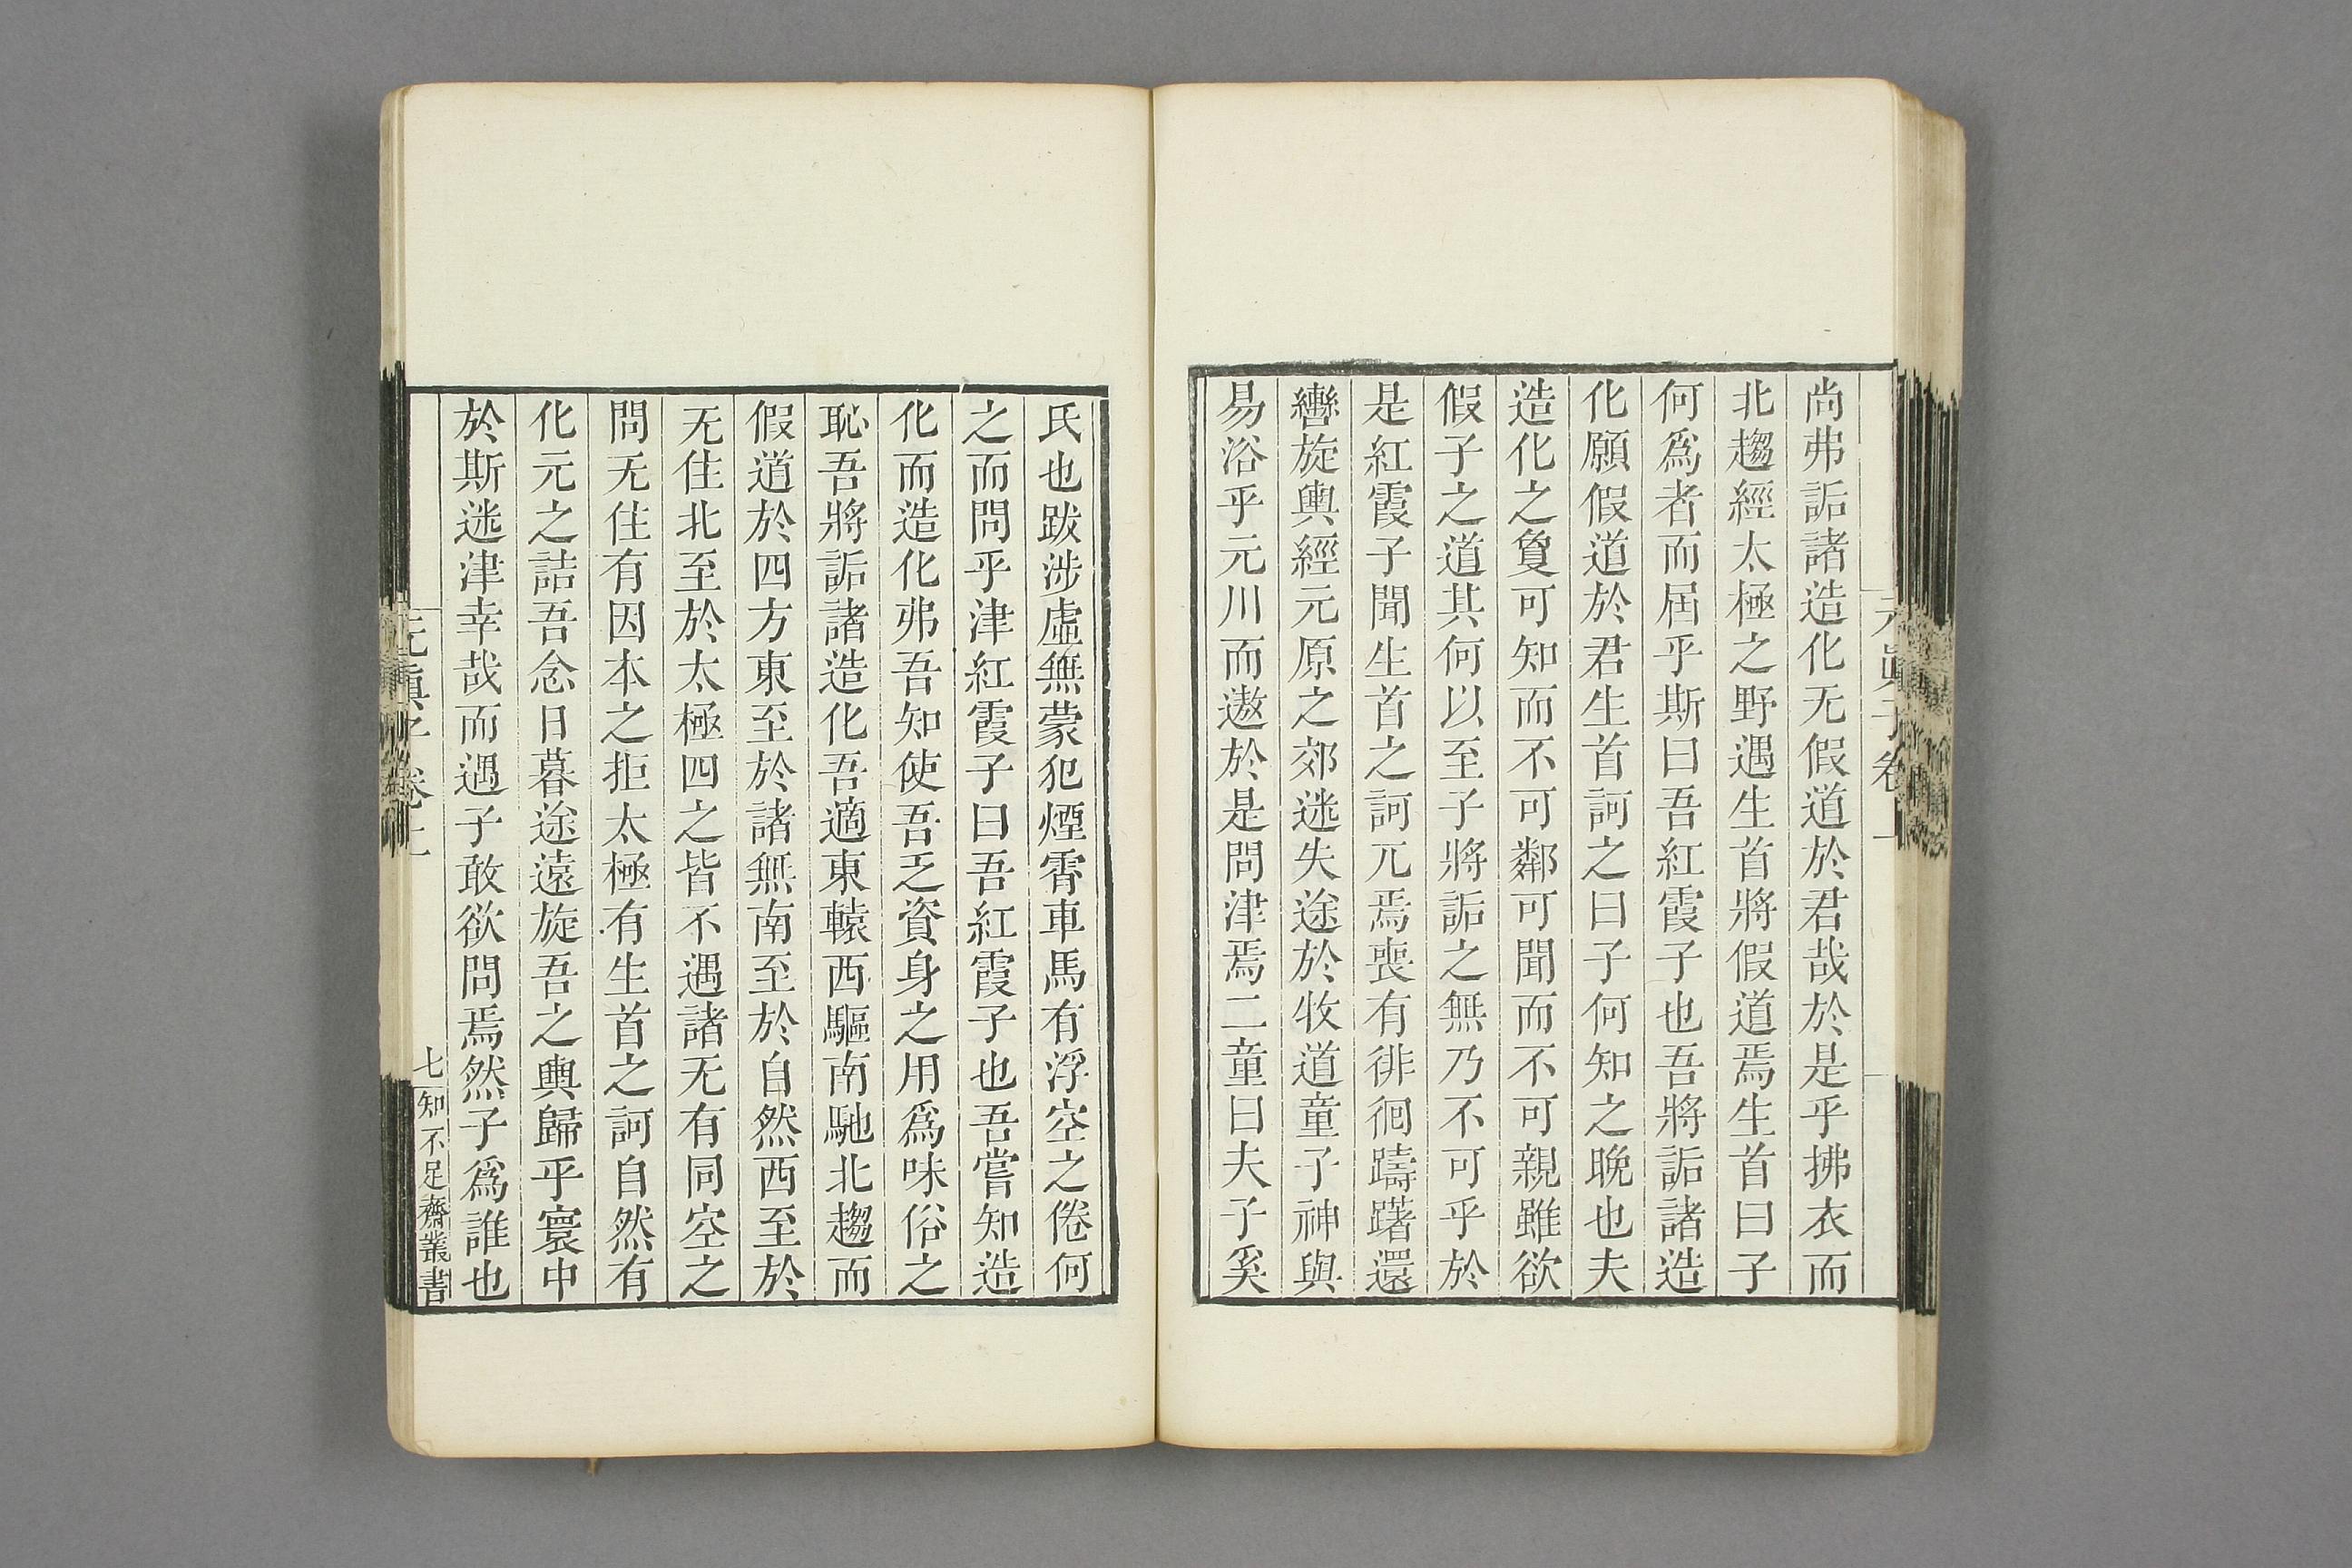 尚弗詬諸造化无假道於君哉於是乎拂衣而
北趨經太極之野遇生首將假道焉生首曰子
何爲者而屆乎斯曰吾紅霞子也吾將詬諸造
化願假道於君生首訶之曰子何知之晚也夫
造化之敻可知而不可鄰可聞而不可親雖欲
假子之道其何以至子將詬之無乃不可乎於
是紅霞子聞生首之訶兀焉喪有徘徊躊躇還
轡旋輿經元原之郊迷失途於牧道童子神與
易浴乎元川而遨於是問津焉二童曰夫子奚
氏也跋涉虛無蒙犯煙霄車馬有浮空之倦何
之而問乎津紅霞子曰吾紅霞子也吾嘗知造
化而造化弗吾知使吾乏資身之用爲味俗之
恥吾將詬諸造化吾適東轅西驅南馳北趨而
假道於四方東至於諸無南至於自然西至於
无住北至於太極四之皆不遇諸无有同空之
問无住有因本之拒太極有生首之訶自然有
化元之詰吾念日暮途遠旋吾之輿歸乎寰中
於斯迷津幸哉而遇子敢欲問焉然子爲誰也
元眞子卷上
七
知不足齋叢書